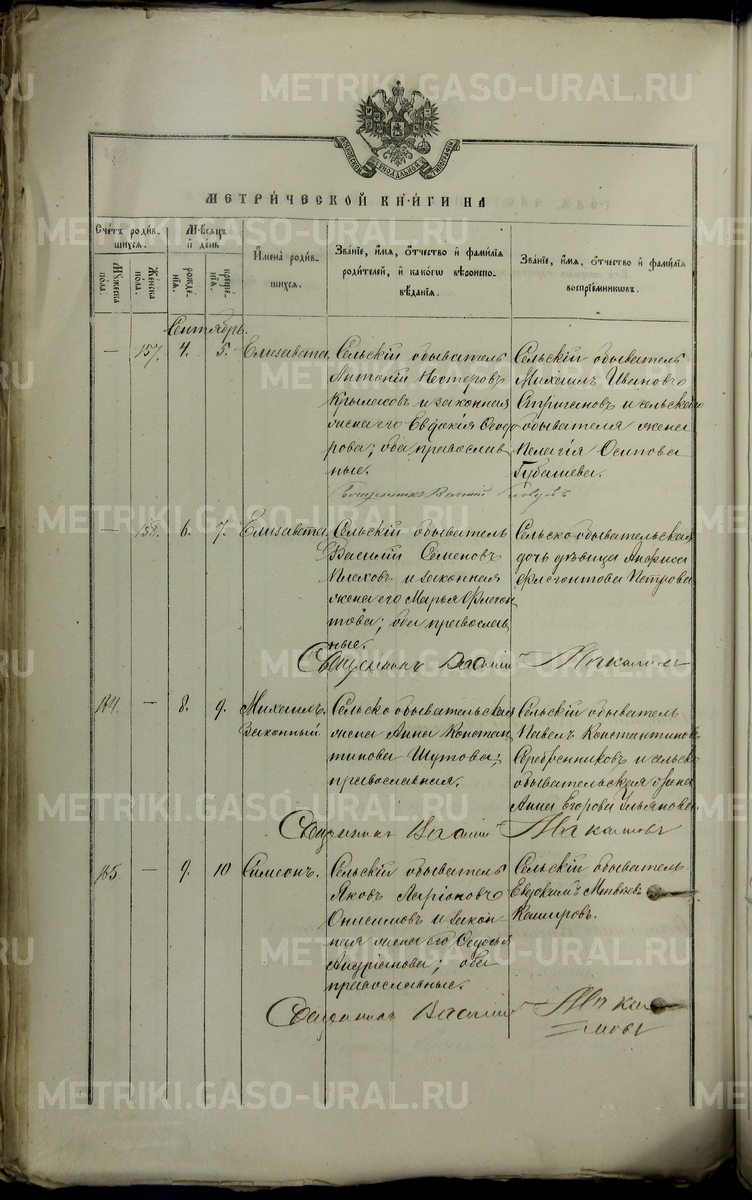 МОСКОВСКОЙ СѴНОДАЛЬНОЙ ТИПОГРАФІИ
МЕТРИ́ЧЕСКОЙ КНИ́ГИ НА
Сче́тъ роди́в-
шихся.
Му́жеска
по́ла.
Же́нска
по́ла.
Мѣ́сяцъ
и́ де́нь
рожде́-
нїя.
креще́-
нїя.
И҆мена̀ роди́в-
шихся.
Зва́нїе, и҆́мя, ѻ҆́тчество и҆ фами́лїя
роди́телей, и҆ како́гѡ вѣроиспо-
вѣ́данїя.
Зва́нїе, и҆́мя, ѻ҆́тчество и҆ фами́лїя
воспрїе́мниковъ.
Сентябрь.
— 157. 4. 5. Елисавета.
Сельскій обыватель
Антоній Нестеровъ
и законная
жена его Евдокія Ѳеодо-
рова; оба православ-
ные.
Сельскій обыватель
Михаилъ Ивановъ
Стригановъ и сельскаго
обывателя жена
Пелагія Осипова
Губашева.
Священникъ Василій
— 158. 6. 7. Елисавета.
Сельскій обыватель
Василій Семеновъ
Плеховъ и законная
жена его Марья Флегон-
това; оба православ-
ные.
Сельско обывательская
дочь дѣвица Анфиса
Флегонтова Петрова
Священникъ Василій Макаловъ
164. — 8. 9. Михаилъ.
Законный.
Сельско обывательская
жена Анна Констан-
тинова Шутова;
православная.
Сельскій обыватель
Павелъ Константиновъ
Серебренниковъ и сельско
обывательская
Анна Егорова Ульянова.
Священникъ Василій Макаловъ
165 — 9. 10 Симеонъ.
Сельскій обыватель
Яковъ Ларіоновъ
Онисимовъ и закон-
ная жена его
Андріанова; оба
православные.
Сельскій обыватель
Евдокимъ Матвѣевъ
Кашировъ.
Священникъ Василій Мака
ловъ
METRIKI.GASO-URAL.RU